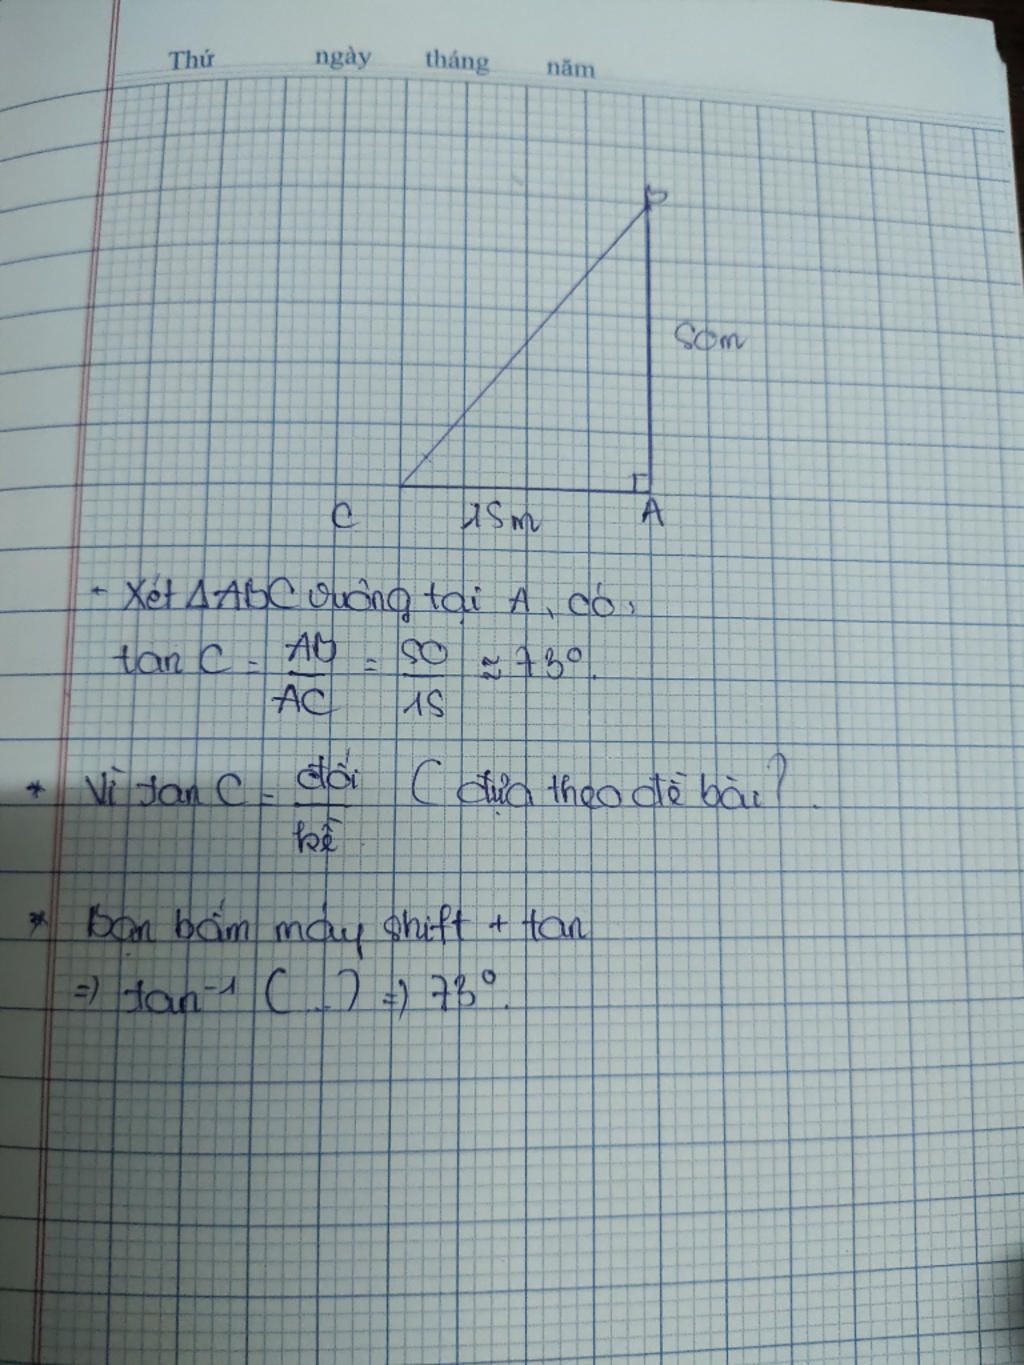 Thứ ngày tháng năm
B
50m
C 15m A
- Xét ΔABC vuông tại A, có:
tan C = AB/AC = 50/15 ≈ 73°.
* Vì tan C = đối/kề (dựa theo đề bài).
* Bạn bấm máy shift + tan
=> tan⁻¹ (...) => 73°.